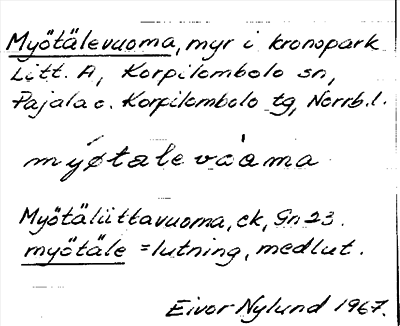 Myötälevuoma, myr i kronopark
Litt. A, Korpilombolo sn,
Pajala o. Korpilombolo tg, Norrb. l.
myøtalevoama
Myötäliittavuoma, ek, Gn 23.
myötäle = lutning, medlut.
Eivor Nylund 1967.